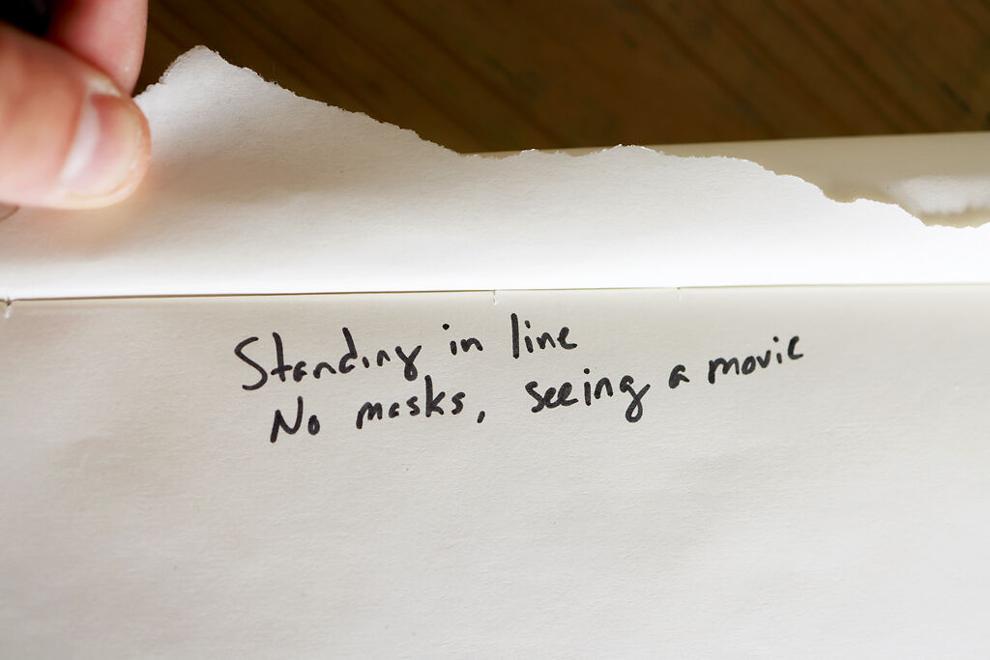 Standing in line
No masks, seeing a movie